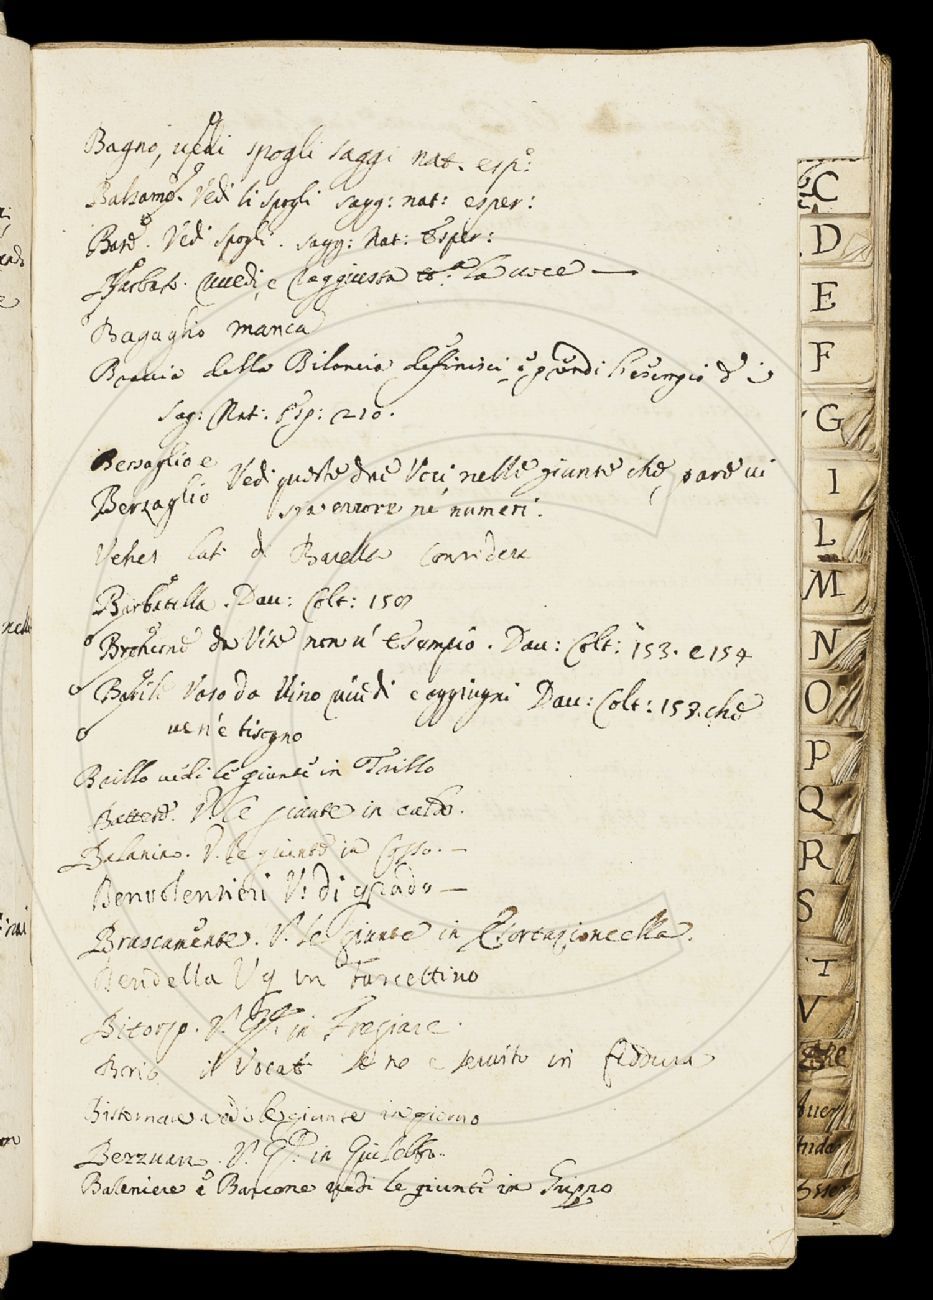 Bagno, vedi spogli saggi nat. esp:
Balsamo. Vedi li spogli sagg: nat: esper:
Base. Vedi spogli. sagg: Nat: Esper:
Barbato. vedi, e raggiusta la voce —
Bagaglio manca
Braccia della Bilancia definisci, e prendi l'esempio d i
sag: Nat: Esp: 210.
Bersaglio e
Berzaglio Vedi queste due Voci nelle giunte che, pare vi
sia errore ne numeri.
Vehes lat: di Barella considera
Barbatella. Dav: Colt: 150
Broncone da Vite non v'è Esempio. Dav: Colt: 153. e 154
Barile Vaso da Vino vedi e aggiugni Dav: Colt: 153. che
ve n'è bisogno
Baillo vedi le giunte in Taillo
Battere. V. le giunte in
Balanino. V. le giunte in Cosso. —
Benvolentieri V. di grado —
Bruscamente. V. le giunte in Esortazioncella.
Bendella V in Farsettino
Bitorzo. V. in Fregiare.
Borio il Vocab. se ne è servito in
Bisternare vedi le giunte in giorno
Berzuan. V. in
Baleniere e Barcone vedi le giunte in Gruppo
C
D
E
F
G
I
L
M
N
O
P
Q
R
S
T
V